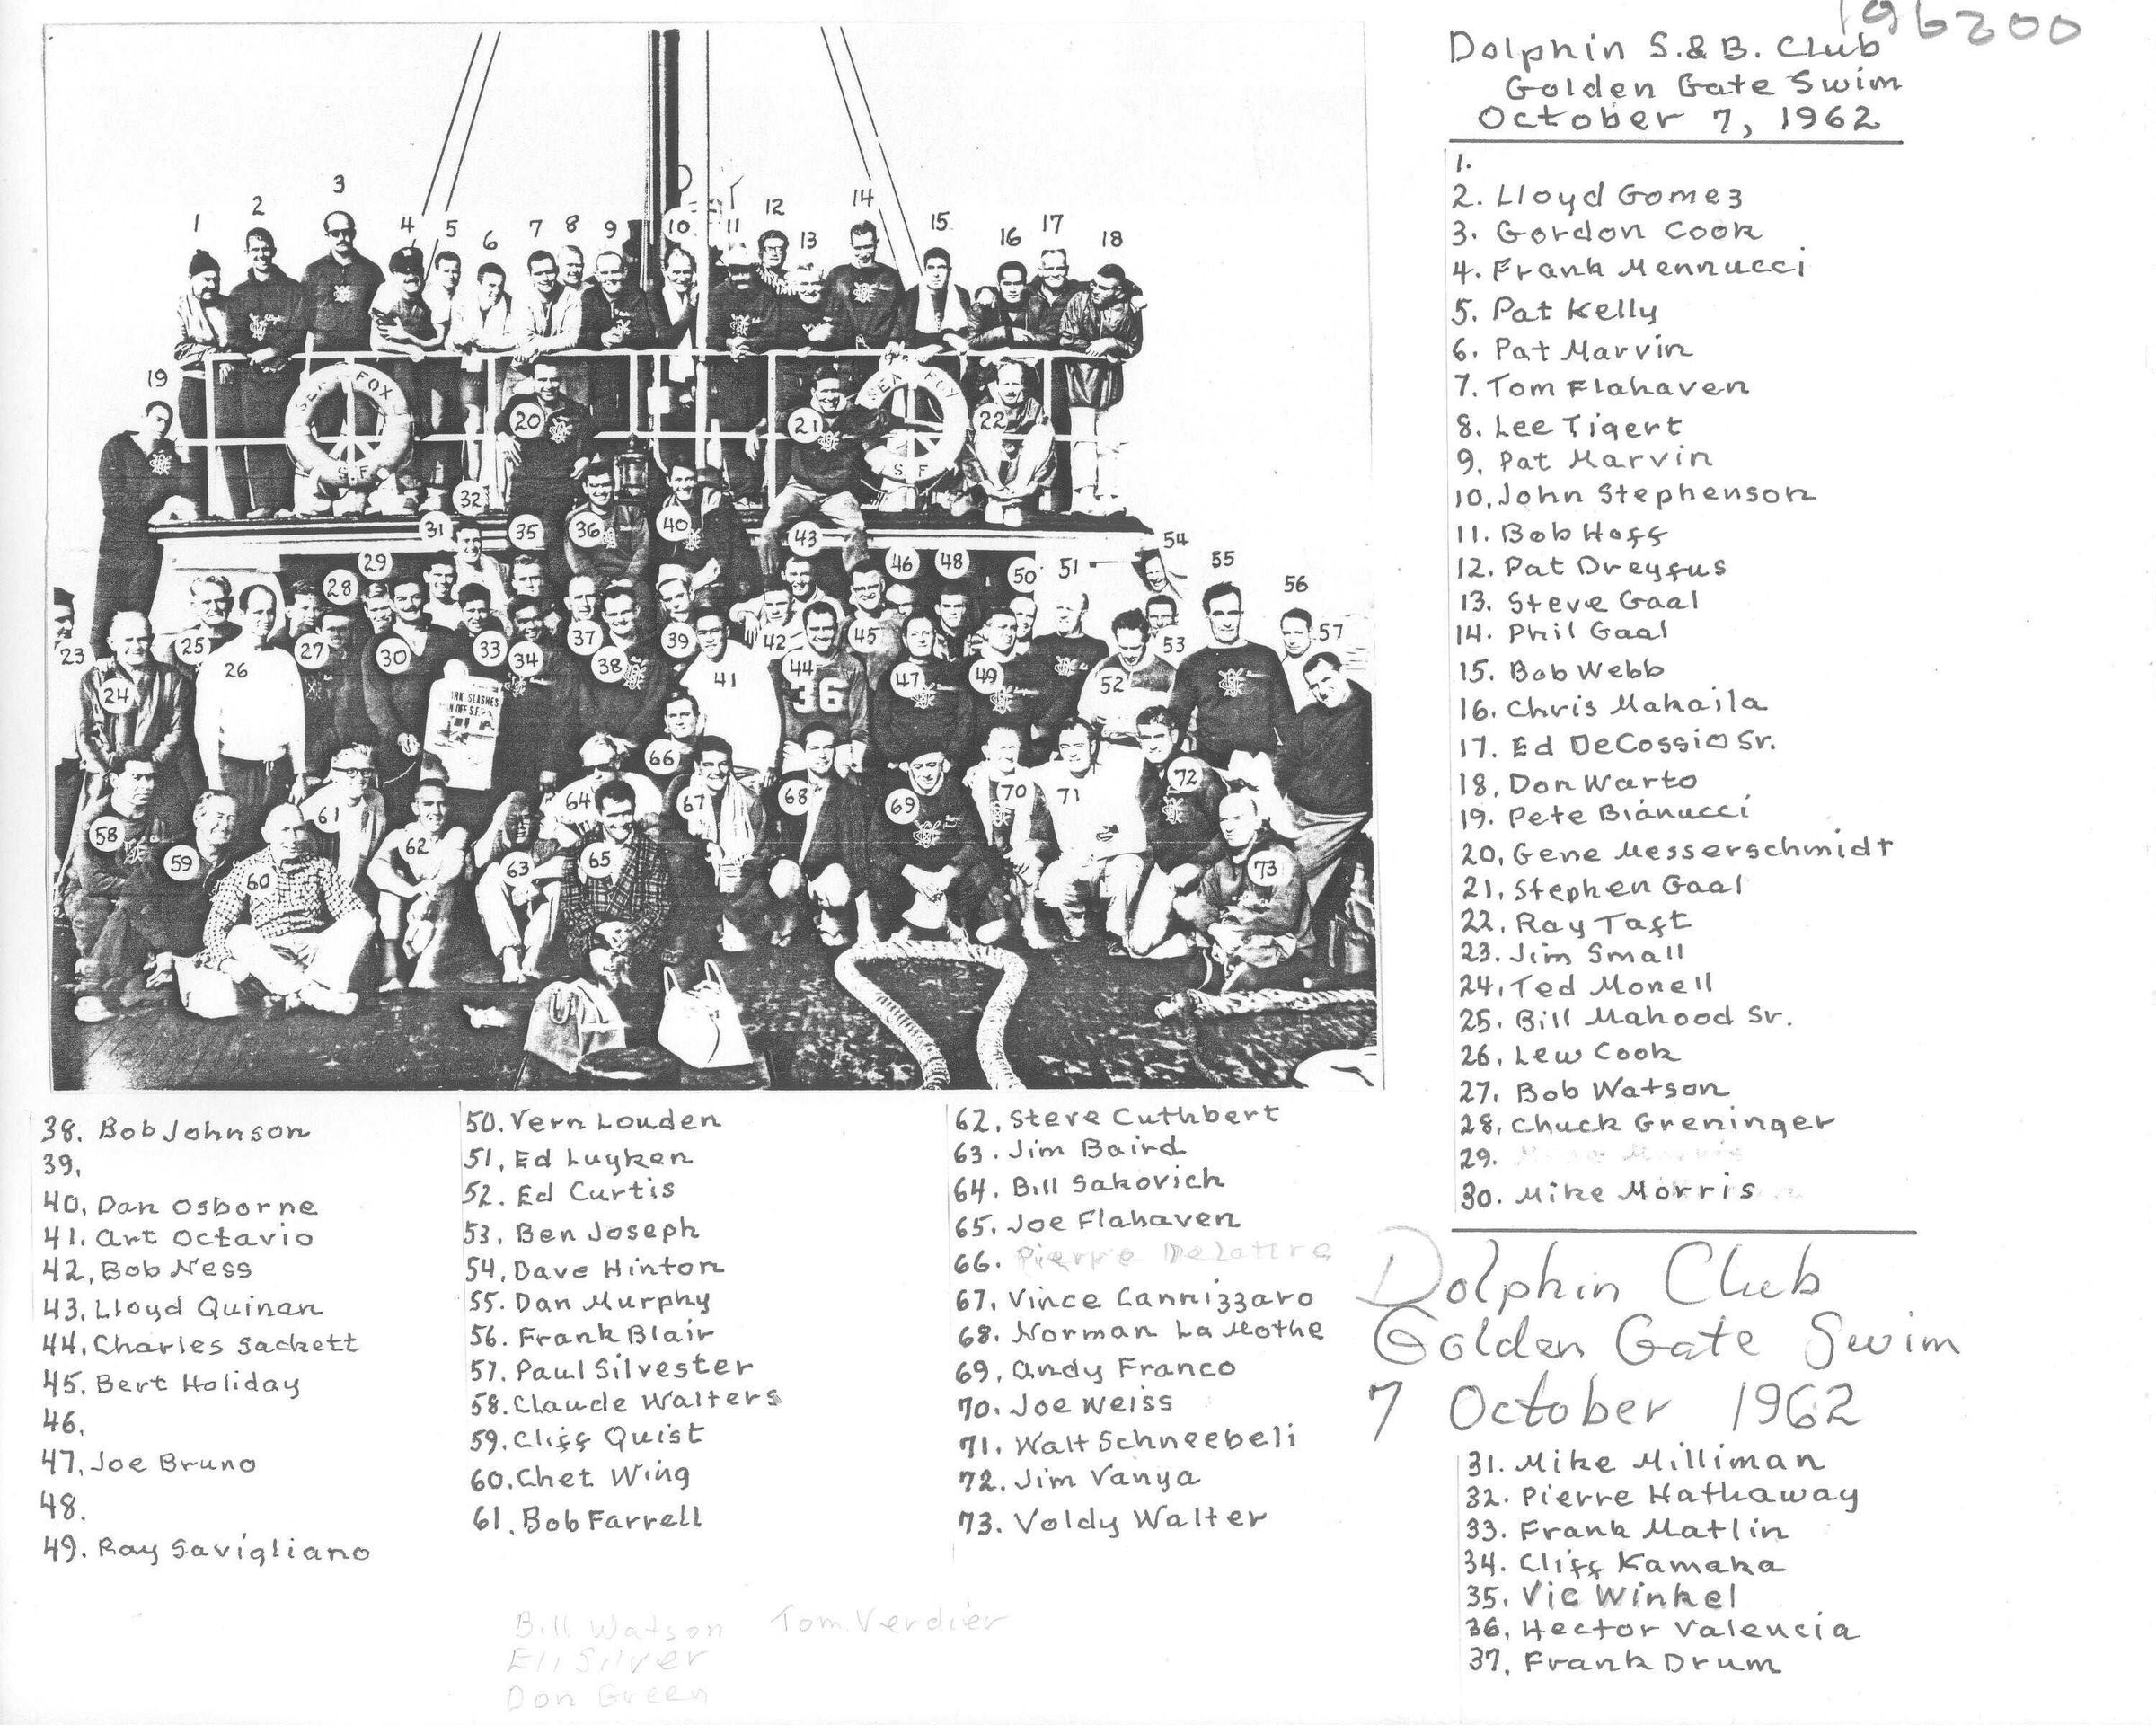 196200
Dolphin S.& B. Club
Golden Gate Swim
October 7, 1962
1.
2. Lloyd Gomez
3. Gordon Cook
4. Frank Mennucci
5. Pat Kelly
6. Pat Marvin
7. Tom Flahaven
8. Lee Tigert
9. Pat Marvin
10. John Stephenson
11. Bob Hoff
12. Pat Dreyfus
13. Steve Gaal
14. Phil Gaal
15. Bob Webb
16. Chris Makaila
17. Ed DeCossio Sr.
18. Don Warto
19. Pete Bianucci
20. Gene Messerschmidt
21. Stephen Gaal
22. Ray Taft
23. Jim Small
24. Ted Monell
25. Bill Mahood Sr.
26. Lew Cook
27. Bob Watson
28. Chuck Greninger
29.
30. Mike Morris
Dolphin Club
Golden Gate Swim
7 October 1962
31. Mike Milliman
32. Pierre Hathaway
33. Frank Matlin
34. Cliff Kamaka
35. Vic Winkel
36. Hector Valencia
37. Frank Drum
38. Bob Johnson
39.
40. Dan Osborne
41. Art Octavio
42. Bob Ness
43. Lloyd Quinan
44. Charles Sackett
45. Bert Holiday
46.
47. Joe Bruno
48.
49. Ray Savigliano
50. Vern Louden
51. Ed Luyken
52. Ed Curtis
53. Ben Joseph
54. Dave Hinton
55. Dan Murphy
56. Frank Blair
57. Paul Silvester
58. Claude Walters
59. Cliff Quist
60. Chet Wing
61. Bob Farrell
62. Steve Cuthbert
63. Jim Baird
64. Bill Sakovich
65. Joe Flahaven
66. Pierre Delattre
67. Vince Cannizzaro
68. Norman La Mothe
69. Andy Franco
70. Joe Weiss
71. Walt Schneebeli
72. Jim Vanya
73. Voldy Walter
Bill Watson Tom Verdier
Eli Silver
Don Green
1 2 3 4 5 6 7 8 9 10 11 12 13 14 15 16 17 18
19 20 21 22
SEA FOX
S F
SEA FOX
S F
31 32 35 36 40 43 54
28 29 46 48 50 51 55 56
23 24 25 26 27 30 33 34 37 38 39 41 42 44 45 47 49 52 53 57
SLASHES
OFF S.F.
36
58 59 60 61 62 63 64 65 66 67 68 69 70 71 72 73